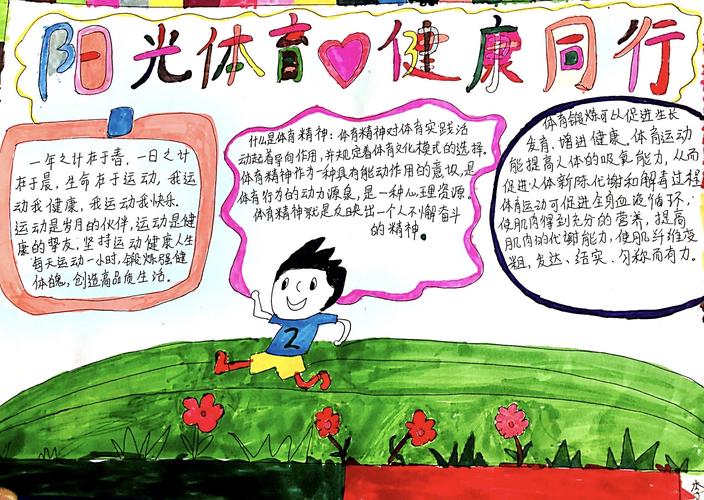 阳光体育健康同行
一年之计在于春，一日之计
在于晨，生命在于运动，我运
动我健康，我运动我快乐.
运动是岁月的伙伴，运动是健
康的挚友，坚持运动健康人生
每天运动一小时，锻炼强健
体魄，创造高品质生活。
什么是体育精神：体育精神对体育实践活
动起着导向作用，并规定着体育文化模式的选择。
体育精神作为一种具有能动作用的意识，是
体育行为的动力源泉，是一种心理资源。
体育精神就是反映出一个人不懈奋斗
的精神。
体育锻炼可以促进生长
发育、增进健康。体育运动
能提高人体的吸氧能力，从而
促进人体新陈代谢和解毒过程
体育运动可促进全身血液循环，
使肌肉得到充分的营养，提高
肌肉的代谢能力，使肌纤维变
粗，发达、结实、匀称而有力。
2
李